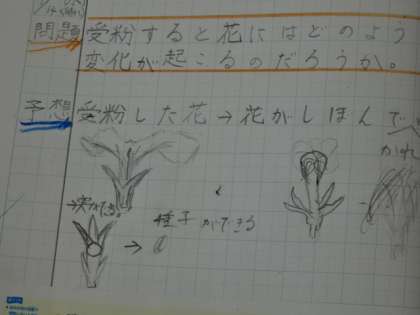 問題 受粉すると花にはどのよう
変化が起こるのだろうか。
予想 受粉した花→花がしぼんで
かれ
→実ができる。
種子ができる
→